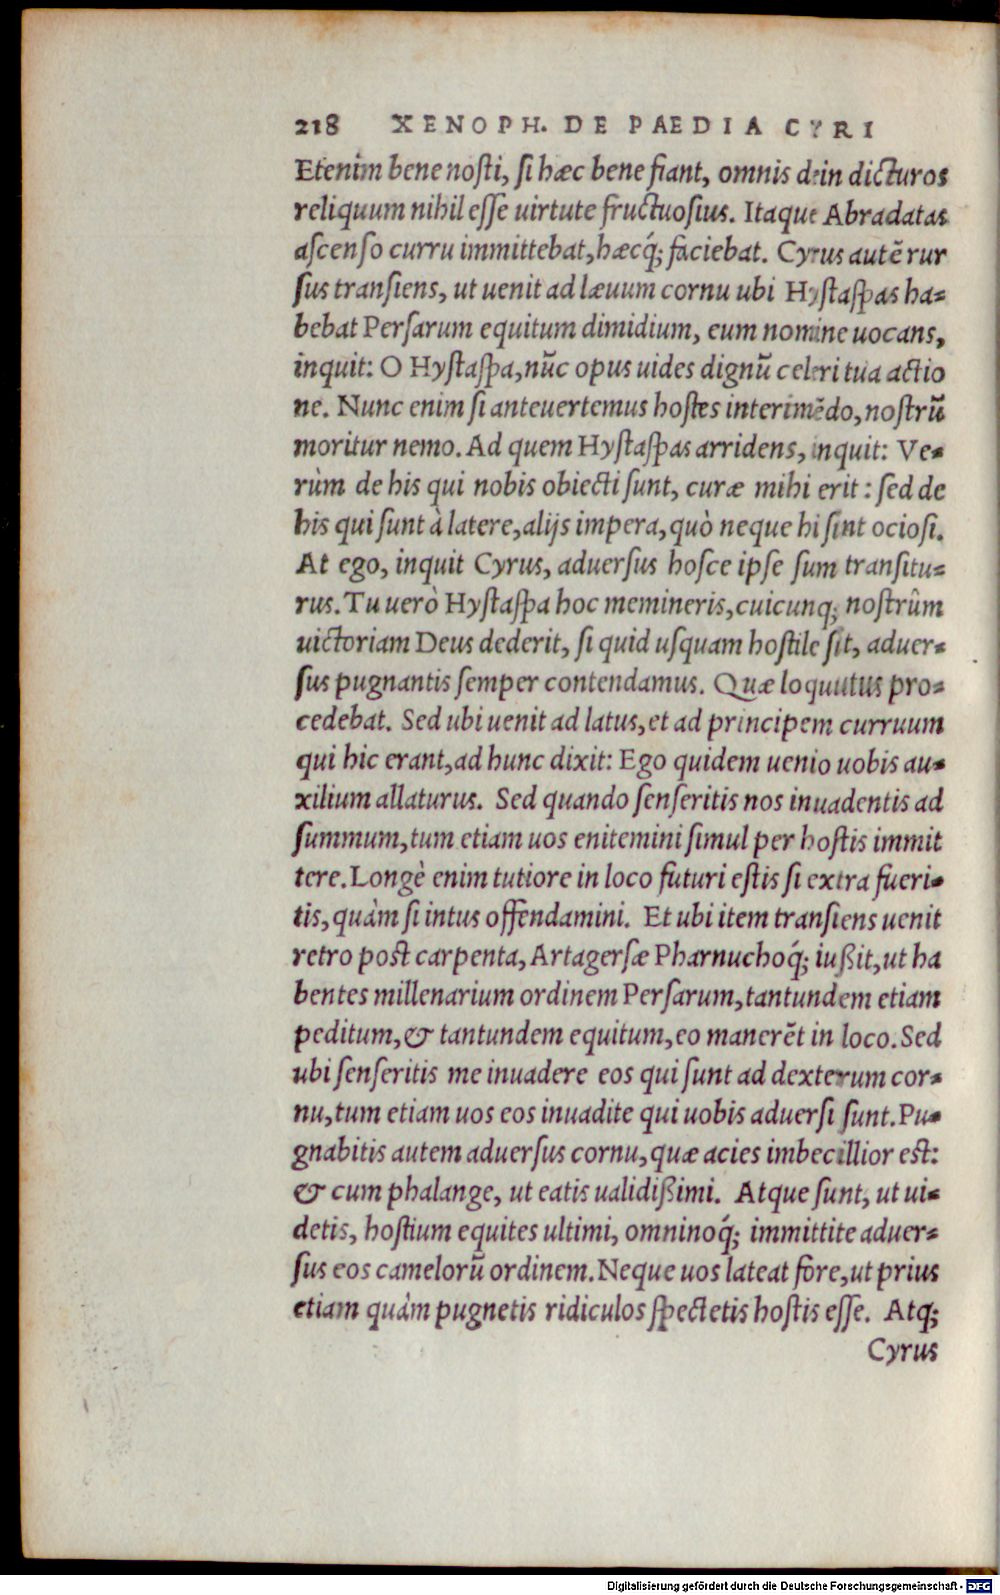 218 XENOPH. DE PAEDIA CYRI
Etenim bene nosti, si hæc bene fiant, omnis dein dicturos
reliquum nihil esse uirtute fructuosius. Itaque Abradatas
ascenso curru immittebat, hæcq́; faciebat. Cyrus autē rur
sus transiens, ut uenit ad læuum cornu ubi Hystaspas ha-
bebat Persarum equitum dimidium, eum nomine uocans,
inquit: O Hystaspa, nūc opus uides dignū celeri tua actio
ne. Nunc enim si anteuertemus hostes interimēdo, nostrū
moritur nemo. Ad quem Hystaspas arridens, inquit: Ve-
rùm de his qui nobis obiecti sunt, curæ mihi erit: sed de
his qui sunt à latere, alijs impera, quò neque hi sint ociosi.
At ego, inquit Cyrus, aduersus hosce ipse sum transitu-
rus. Tu uerò Hystaspa hoc memineris, cuicunq; nostrûm
uictoriam Deus dederit, si quid usquam hostile sit, aduer-
sus pugnantis semper contendamus. Quæ loquutus pro-
cedebat. Sed ubi uenit ad latus, et ad principem curruum
qui hic erant, ad hunc dixit: Ego quidem uenio uobis au-
xilium allaturus. Sed quando senseritis nos inuadentis ad
summum, tum etiam uos enitemini simul per hostis immit
tere. Longè enim tutiore in loco futuri estis si extra fueri-
tis, quàm si intus offendamini. Et ubi item transiens uenit
retro post carpenta, Artagersæ Pharnuchoq́; iußit, ut ha
bentes millenarium ordinem Persarum, tantundem etiam
peditum, & tantundem equitum, eo manerēt in loco. Sed
ubi senseritis me inuadere eos qui sunt ad dexterum cor-
nu, tum etiam uos eos inuadite qui uobis aduersi sunt. Pu-
gnabitis autem aduersus cornu, quæ acies imbecillior est:
& cum phalange, ut eatis ualidißimi. Atque sunt, ut ui-
detis, hostium equites ultimi, omninoq́; immittite aduer-
sus eos camelorū ordinem. Neque uos lateat fore, ut prius
etiam quàm pugnetis ridiculos spectetis hostis esse. Atq;
Cyrus
Digitalisierung gefördert durch die Deutsche Forschungsgemeinschaft - DFG